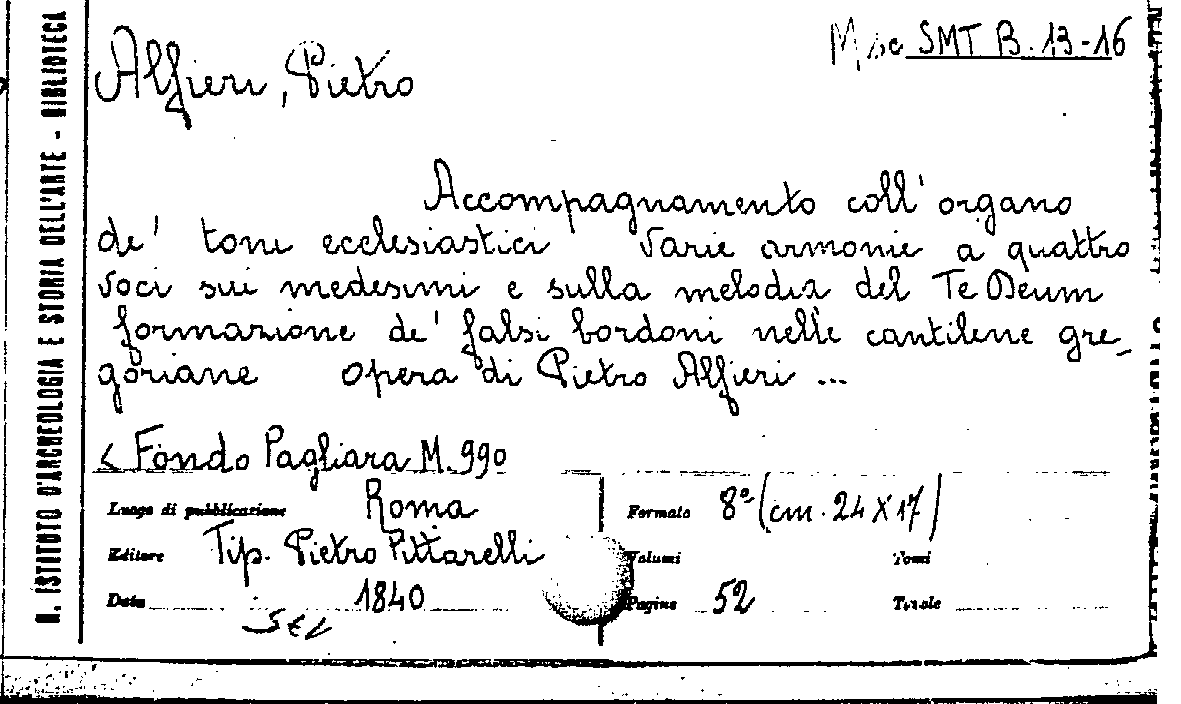 R. ISTITUTO D'ARCHEOLOGIA E STORIA DELL'ARTE - BIBLIOTECA
Misc SMT B. 13-16
Alfieri, Pietro
Accompagnamento coll'organo
de' toni ecclesiastici varie armonie a quattro
voci sui medesimi e sulla melodia del Te Deum
formazione de' falsi bordoni nelle cantilene gre-
goriane opera di Pietro Alfieri ...
< Fondo Pagliara M. 990
Luogo di pubblicazione Roma
Editore Tip. Pietro Pittarelli
Data 1840
Formato 8° (cm. 24 X 17)
Volumi Tomi
Pagine 52 Totale